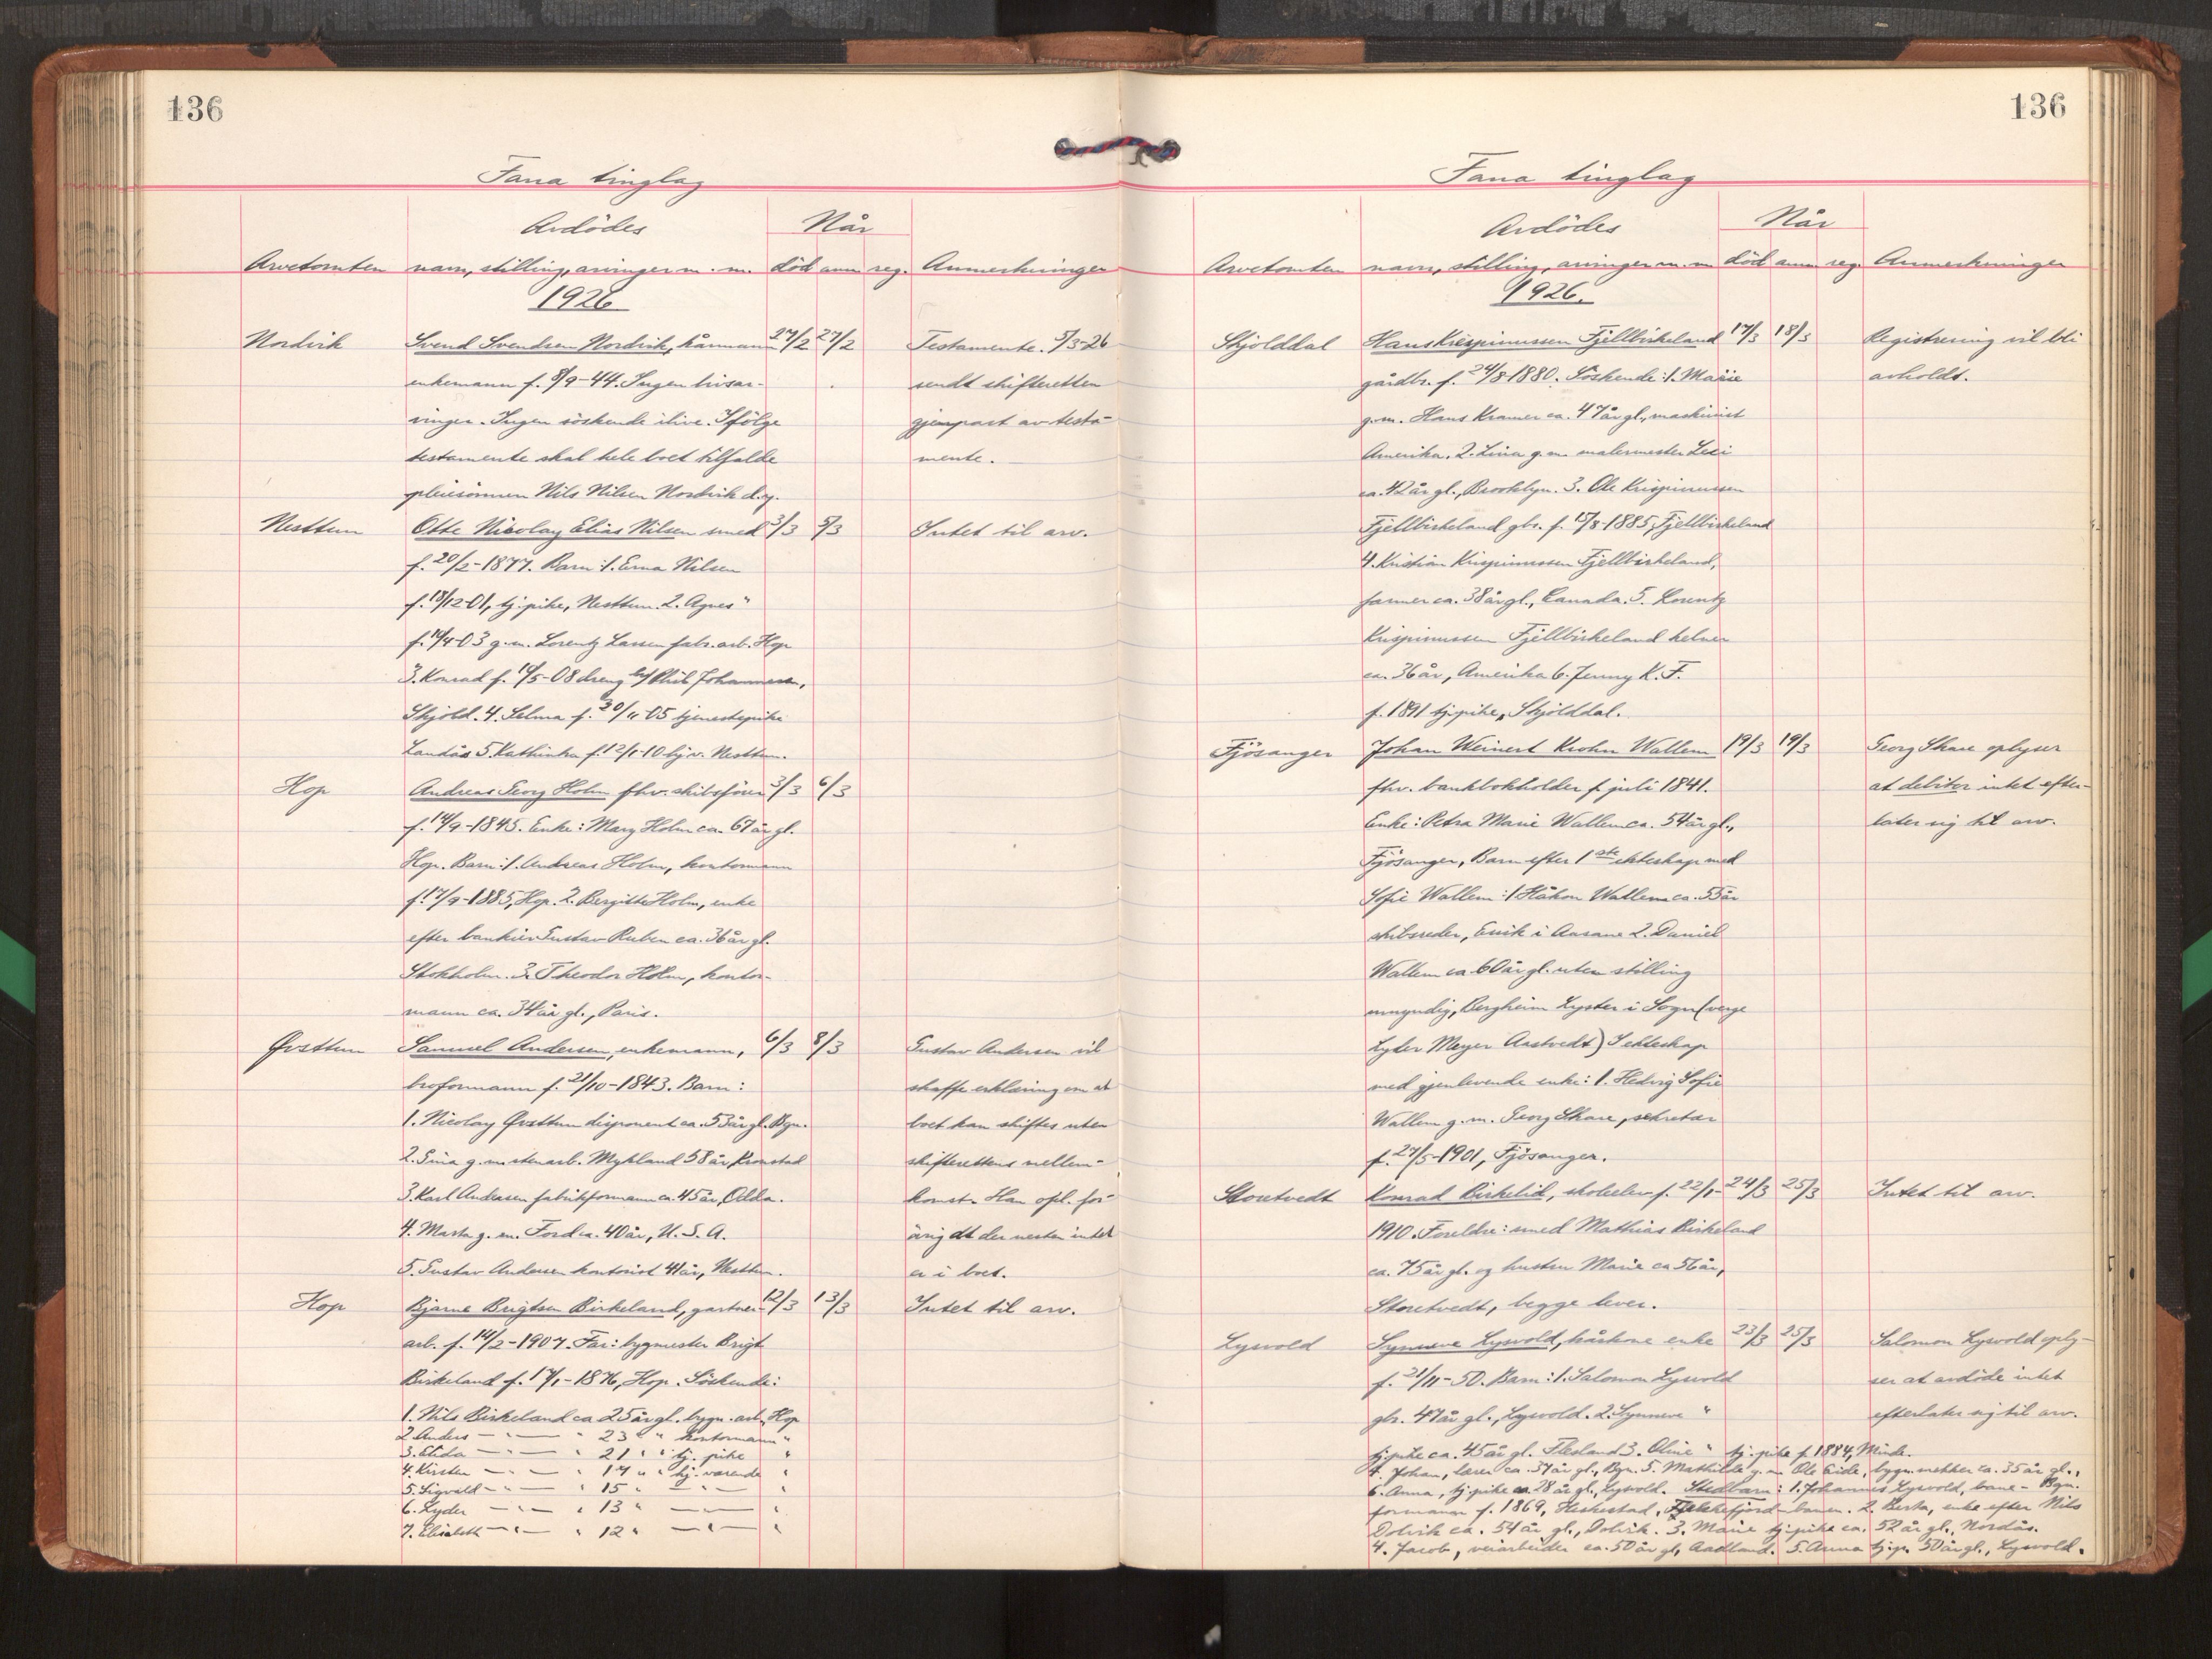 136
Fana tinglag
Avdödes
Når
Arvetomten navn, stilling, arvinger m.m. död anm reg. Anmerkninger
1926
Nordvik Svend Svendsen Nordvik, kårmann 27/2 27/2 Testamente. 5/3-26
enkemann f. 8/9-44. Ingen livsar- sendt skifteretten
vinger. Ingen söskende ilive. Ifölge gjenpart av testa-
testamente skal hele boet tilfalde mente.
pleiesönnen Nils Nilsen Nordvik d.y.
Nesttun Otto Nicolay Elias Nilsen smed 3/3 5/3 Intet til arv.
f. 20/2-1877. Barn: 1. Erna Nilsen
f. 18/12-01, tj.pike, Nesttun. 2. Agnes "
f. 14/4-03 g.m. Lorentz Larsen fabr.arb. Hop
3. Konrad f. 16/5-08 dreng Johannesen,
Skjold. 4. Selma f. 30/11-05 tjenestepike
Landås 5. Kathinka f. 12/1-10 hj.v. Nesttun.
Hop Andreas Georg Holm fhv. skibsförer 3/3 6/3
f. 14/9-1845. Enke: Mary Holm ca. 67 år gl.
Hop. Barn: 1. Andreas Holm, kontormann
f. 17/9-1885, Hop. 2. Bergitte Holm, enke
efter bankier Gustav Ruben ca. 36 år gl.
Stokholm. 3. Theodor Holm, kontor-
mann ca. 34 år gl., Paris.
Øvsttun Samuel Andersen, enkemann, 6/3 8/3 Gustav Andersen vil
broformann f. 21/10-1843. Barn: skaffe erklæring om at
1. Nicolay Øvsttun disponent ca. 53 år gl. Bgn. boet kan skiftes uten
2. Gina g.m. stenarb. Mykland 58 år, Kronstad skifterettens mellem-
3. Karl Andersen fabrikformann ca. 45 år, Odda. komst. Han opl. for-
4. Marta g.m. Ford ca. 40 år, U.S.A. övrig at der nesten intet
5. Gustav Andersen kontorist 41 år, Nesttun. er i boet.
Hop Bjarne Brigtsen Birkeland, gartner- 12/3 13/3 Intet til arv.
arb. f. 14/2-1907. Far: bygmester Brigt
Birkeland f. 17/1-1876, Hop. Söskende:
1. Nils Birkeland ca 25 år gl. bygn.arb. Hop
2. Anders — " — " 23 " " kontormann "
3. Elida — " — " 21 " " tj. pike "
4. Kirsten — " — " 17 " " hj. værende "
5. Sigvald — " — " 15 " — " — "
6. Lyder — " — " 13 " — " — "
7. Elisabeth — " — " 12 " — " — "
136
Fana tinglag
Avdödes
Når
Arvetomten navn, stilling, arvinger m.m död anm reg. Anmerkninger
1926.
Skjolddal Hans Krispinussen Fjellbirkeland 17/3 18/3 Registrering vil bli
gårdbr. f. 24/8-1880. Söskende: 1. Marie avholdt.
g.m. Hans Kramer ca. 47 år gl., maskinist
Amerika. 2. Lina g.m. malermester
ca. 42 år gl., Brooklyn. 3. Ole Krispinussen
Fjellbirkeland gbr. f. 15/8-1885, Fjellbirkeland
4. Kristian Krispinussen Fjellbirkeland,
farmer ca. 38 år gl., Canada. 5. Lorentz
Krispinussen Fjellbirkeland kelner
ca. 36 år, Amerika 6. Jenny K. F.
f. 1891 tj.pike, Skjolddal.
Fjösanger Johan Weinert Krohn Wallem 19/3 19/3 Georg Skare oplyser
fhv. bankbokholder f. juli 1841. at debitor intet efter-
Enke: Petra Marie Wallem ca. 54 år gl., later sig til arv.
Fjösanger, Barn efter 1ste ekteskap med
Sofie Wallem: 1 Håkon Wallem ca. 55 år
skibsreder, Ervik i Aasane 2. Daniel
Wallem ca 60 år gl. uten stilling
umyndig, Bergheim Lyster i Sogn (verge
Lyder Meyer Aastvedt) I ekteskap
med gjenlevende enke: 1. Hedvig Sofie
Wallem g.m. Georg Skare, sekretær
f. 27/5-1901, Fjösanger.
Storetvedt Konrad Birkelid, skoleelev f. 22/1- 24/3 25/3 Intet til arv.
1910. Foreldre: smed Mathias Birkeland
ca. 75 år gl. og hustru Marie ca 56 år,
Storetvedt, begge lever.
Lysvold Synneve Lysvold, kårkone enke 23/3 25/3 Salomon Lysvold oply-
f. 21/11-50. Barn: 1. Salomon Lysvold ser at avdöde intet
gbr. 47 år gl., Lysvold. 2. Synneve " efterlater sig til arv.
tj.pike ca. 45 år gl. Flesland 3. Oline " tj.pike f. 1884, Minde.
4. Johan, lærer ca. 37 år gl., Bgn. 5. Mathilde g.m. Ole Eide, bygn.snekker ca. 35 år gl.,
6. Anna, tj.pike ca. 28 år gl., Lysvold. Stedbarn: 1. Johannes Lysvold, bane- Bgn.
formann f. 1869, Heskestad, Flekkefjord-banen. 2. Berta, enke efter Nils
Dolvik ca. 54 år gl., Dolvik. 3. Marie tj.pike ca. 52 år gl., Nordås.
4. Jacob, veiarbeider ca. 50 år gl, Aadland. 5. Anna tj.p. 50 år gl., Lysvold.